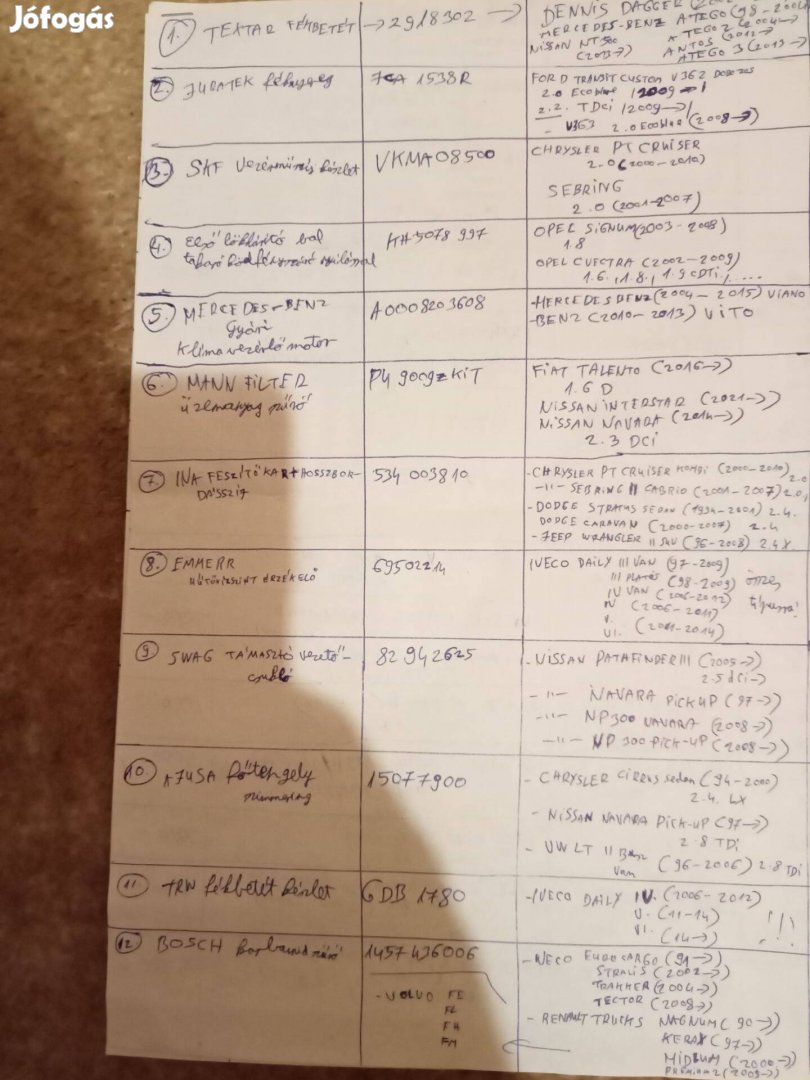 Jófogás
1. TEXTAR FÉKBETÉT → 2918302 →
DENNIS DAGGER
MERCEDES-BENZ ATEGO (98-2004)
NISSAN NT500 ATEGO 2 (2004→
(2013→) ANTOS (2012→
ATEGO 3 (2013→
2. JURATEK féknyereg
JCA 1538R
FORD TRANSIT CUSTOM V362 DOBOZOS
2.0 EcoBlue /2009→/
2.2. TDCi /2009→/
- V363 2.0 EcoBlue (2008→)
3. SKF Vezérműszíj készlet
VKMA08500
CHRYSLER PT CRUISER
2.0 (2000-2010)
SEBRING
2.0 (2001-2007)
4. Első lökhárító bal
takaró ködfényszóró nyílással
5078 997
OPEL SIGNUM (2003-2008)
1.8
OPEL VECTRA (2002-2009)
1.6., 1.8., 1.9 CDTi, .....
5. MERCEDES-BENZ
Gyári
Klíma vezérlő motor
A0008203608
-MERCEDES BENZ (2004-2015) VIANO
-BENZ (2010-2013) VITO
6. MANN FILTER
üzemanyag szűrő
PU 9009z KIT
FIAT TALENTO (2016→)
1.6 D
NISSAN INTERSTAR (2021→)
NISSAN NAVARA (2014→)
2.3 DCi
7. INA FESZÍTŐKAR+HOSSZBOR-
DÁSSZÍJ
534 003810
-CHRYSLER PT CRUISER KOMBI (2000-2010) 2.0
-"- SEBRING II CABRIO (2001-2007) 2.0,
-DODGE STRATUS SEDAN (1994-2001) 2.4.
DODGE CARAVAN (2000-2007) 2.4
-JEEP WRANGLER II SUV (96-2008) 2.4X.
8. EMMERR
HŰTŐVÍZSZINT ÉRZÉKELŐ
69502214
IVECO DAILY III VAN (97-2009)
III PLATÓS (98-2009) összes
IV VAN (2006-2012) típussa!
IV (2006-2011)
V.
VI. (2011-2014)
9 SWAG TÁMASZTÓ vezető-
csukló
82 942625
-NISSAN PATHFINDER III (2005→)
2.5 dCi→)
-"- NAVARA PICKUP (97→)
-"- NP300 NAVARA (2008→)
-"- NP 300 PICK-UP (2008→)
10. AJUSA főtengely
szimmering
15077900
- CHRYSLER CIRRUS sedan (94-2000)
2.4. LX
- NISSAN NAVARA PICK-UP (97→)
2.8 TDi
- VW LT II Busz
Van (96-2006) 2.8 TDi
11 TRW fékbetét készlet
GDB 1780
-IVECO DAILY IV. (2006-2012)
V. (11-14)
VI. (14→) !!
12. BOSCH
1457436006
-IVECO EUROCARGO (91→)
STRALIS (2002→)
TRAKKER (2004→)
TECTOR (2008→)
-VOLVO FE
FL
FH
FM
-RENAULT TRUCKS MAGNUM (90→)
KERAX (97→)
MIDLUM (2000→)
PREMIUM 2 (2005→)